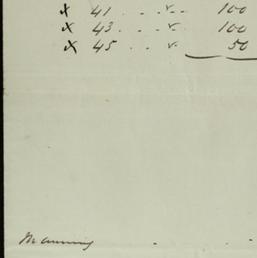 x 41 . . . v . . 100
x 43 . . . v . . 100
x 45 . . . v . 50
Manning . .